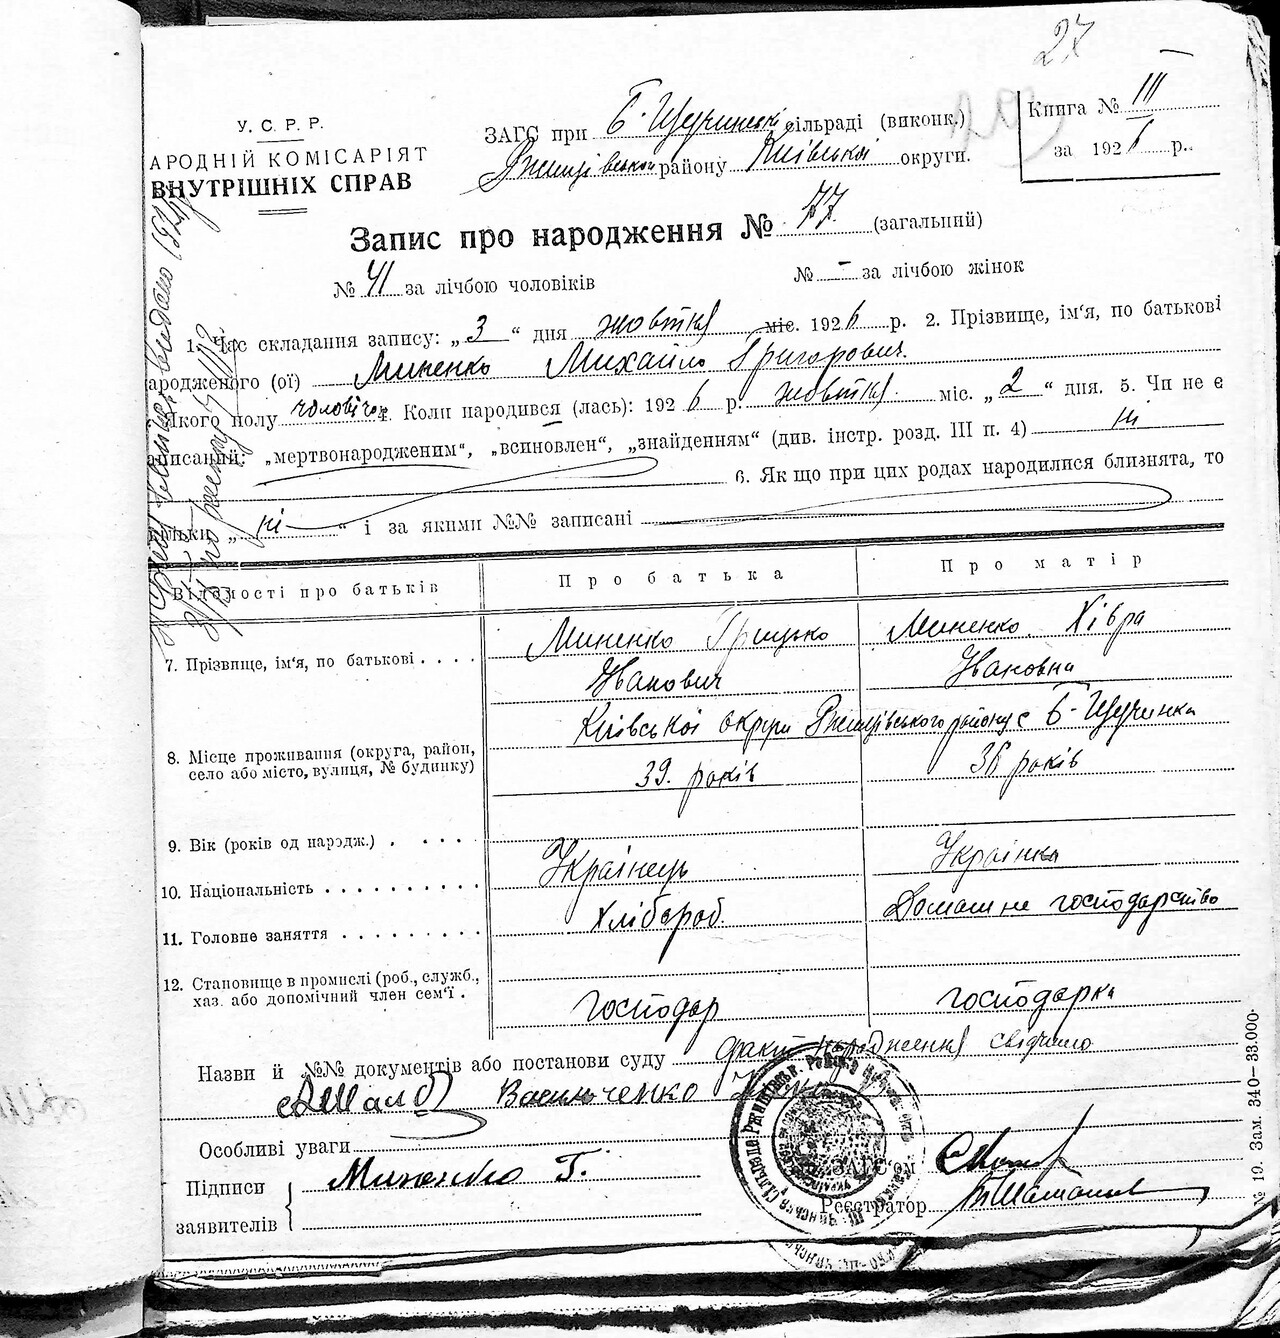 27
У. С. Р. Р.
АРОДНІЙ КОМІСАРІЯТ
ВНУТРІШНІХ СПРАВ
ЗАГС при Б-Щучинськ сільраді (виконк.)
Ржищівськой району Київської округи.
Книга № III
за 1926 р.
Запис про народження № 77 (загальний)
№ 41 за лічбою чоловіків № - за лічбою жінок
1. Час складання запису: „3“ дня жовтня міс. 1926 р. 2. Прізвище, ім'я, по батькові
ародженого (ої) Миненко Михайло Григорович.
Якого полу чоловічо 4. Коли народився (лась): 1926 р. жовтня міс. „2“ дня. 5. Чи не є
аписаний: „мертвонародженим“, „всиновлен“, „знайденням“ (див. інстр. розд. III п. 4) ні
6. Як що при цих родах народилися близнята, то
кільки „ні“ і за якими №№ записані
Відомості про батьків Про батька Про матір
7. Прізвище, ім'я, по батькові . . . . Миненко Грицько Иванович Миненко Хівра Ивановна
8. Місце проживання (округа, район, село або місто, вулиця, № будинку) Київської округи Ржищівського району с Б-Щучинка
39 років 36 років
9. Вік (років од народж.) . . . . .
10. Національність . . . . . . . . . . Українець Українка
11. Головне заняття . . . . . . . . . Хлібороб. Домашне господарство
12. Становище в промислі (роб., служб., хаз. або допомічний член сем'ї . господар господарка
Назви й №№ документів або постанови суду факт народження свідчило
Васильченко
Особливі уваги
Підписи Миненко Г.
заявителів
ЗАГС'ом
Реєстратор
№ 19. Зам. 340—33.000.